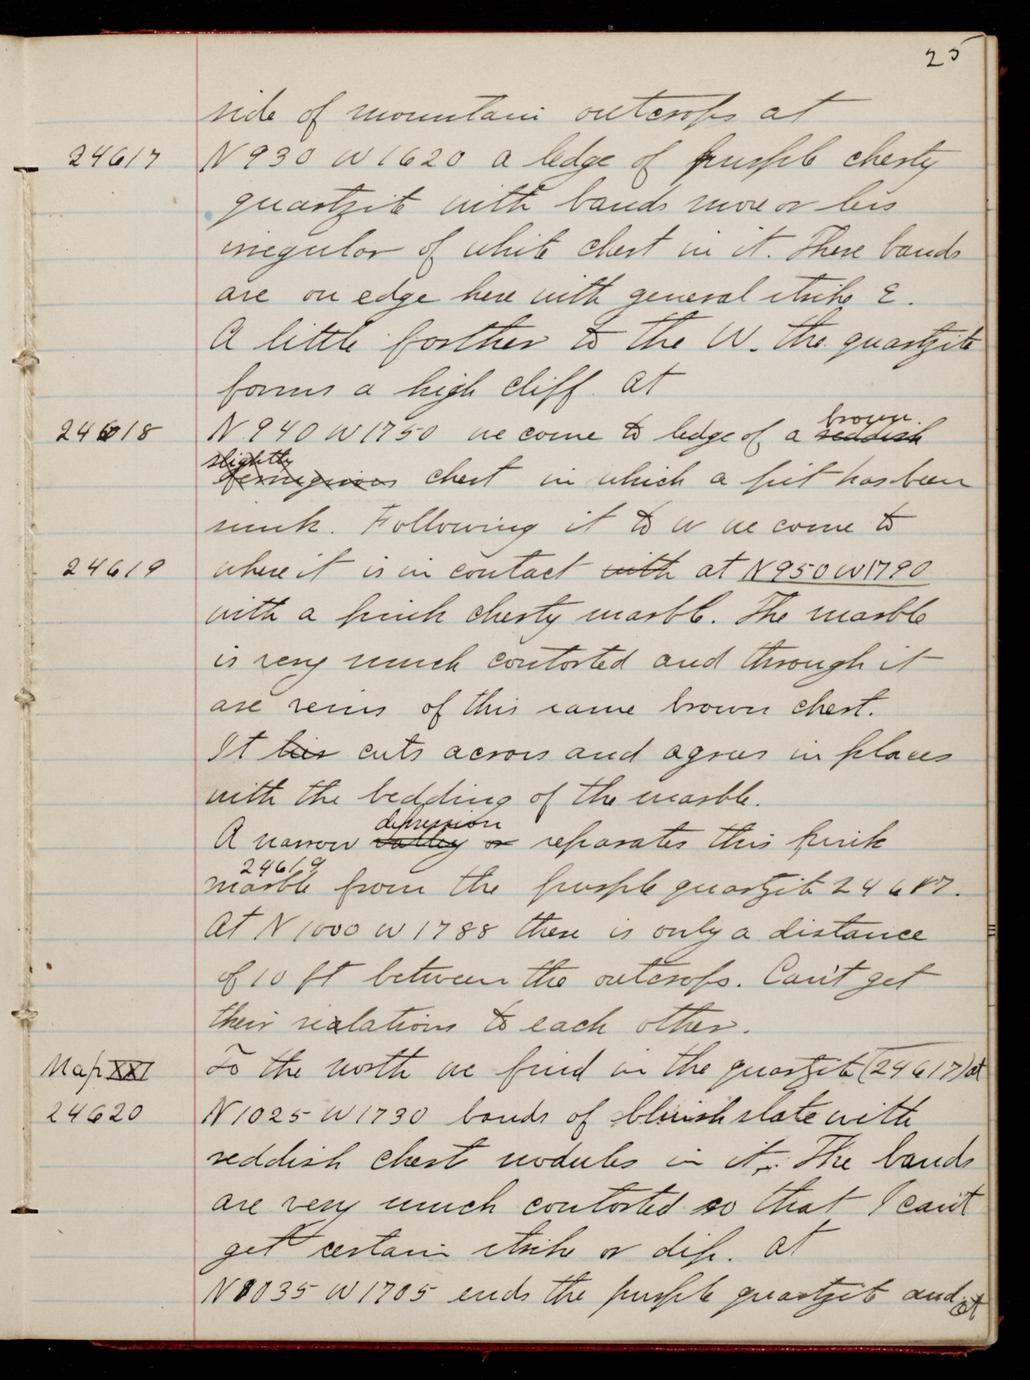 25
side of mountain outcrops at
24617 N 930 W 1620 a ledge of purple cherty
quartzite with bands more or less
irregular of white chert in it. These bands
are on edge here with general strike E.
A little farther to the W. the quartzite
forms a high cliff. At
24618 N 940 W 1750 we come to ledge of a brown reddish
slightly ferruginous chert in which a pit has been
sunk. Following it to W we come to
24619 where it is in contact with at N950 W1790
with a pink cherty marble. The marble
is very much contorted and through it
are veins of this same brown chert.
It lies cuts across and agrees in places
with the bedding of the marble.
A narrow depression valley or separates this pink
24619
marble from the purple quartzite 24617.
At N 1000 W 1788 there is only a distance
of 10 ft between the outcrops. Can't get
their relations to each other.
Map XXI To the north we find in the quartzite (24617) at
24620 N1025 W1730 bands of bluish slate with
reddish chert nodules in it. The bands
are very much contorted so that I can't
get certain strike or dip. At
N1035 W1705 ends the purple quartzite and at